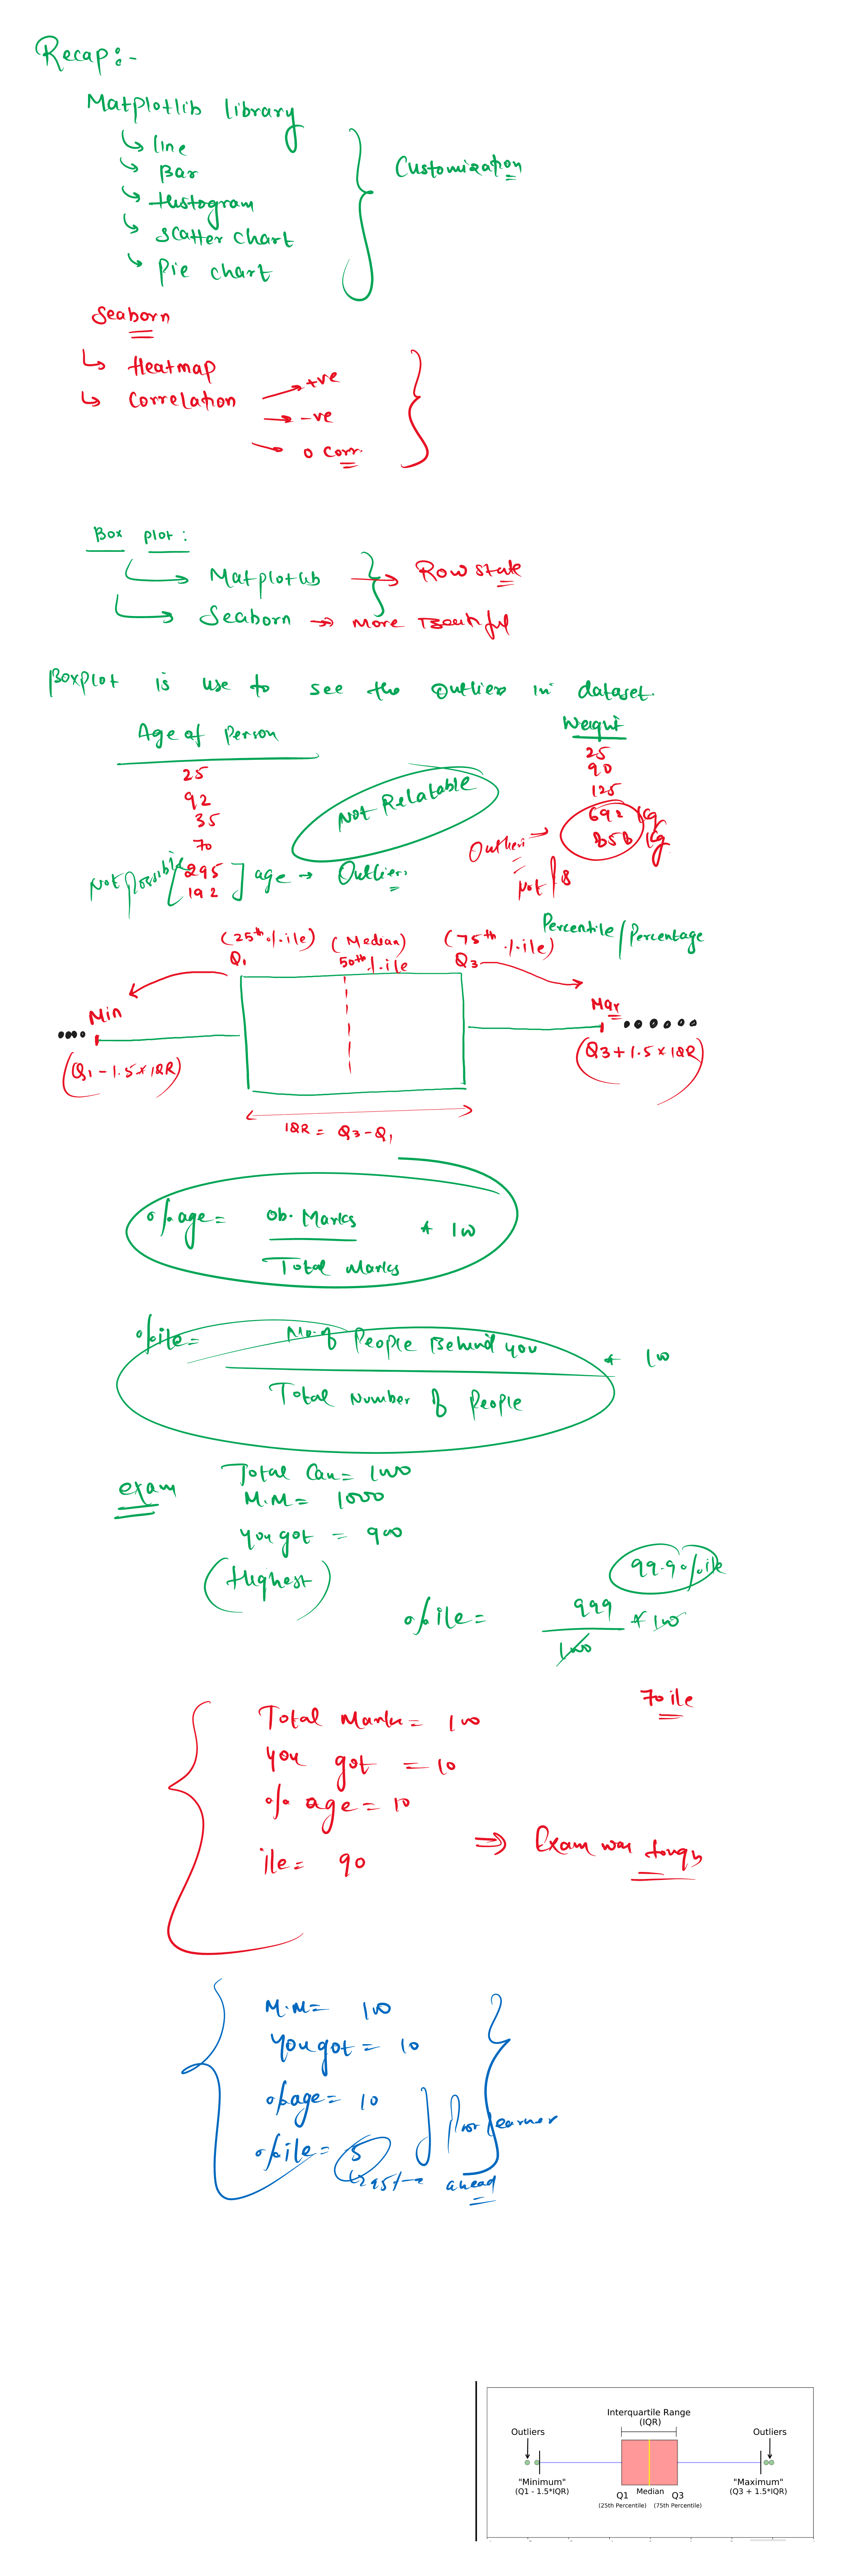 Recap:-
Matplotlib library
line
Bar
Histogram
scatter chart
pie chart
Customization
Seaborn
Heatmap
Correlation
+ve
-ve
0 Corr.
Box plot:
Matplotlib
Row state
Seaborn → More Beautiful
Boxplot is use to see the outliers in dataset.
Age of Person
25
92
35
70
295
192
Not possible
age → Outliers
Not Relatable
Weight
25
90
125
692 kg
858 kg
Outliers
Not
Percentile/Percentage
(25th %ile) (Median) (75th %ile)
Q1 50th %ile Q3
Min
Max
(Q1 - 1.5 * IQR)
(Q3 + 1.5 * IQR)
IQR = Q3-Q1
%age = Ob. Marks
Total Marks
* 100
%ile = No. of People Behind you
Total Number of People
* 100
exam
Total Can = 1000
M.M = 1000
You got = 900
(Highest)
99.9%ile
%ile = 999
1000
* 100
70 ile
Total Marks = 100
you got = 10
% age = 10
ile = 90
⇒ Exam was tough
M.M = 100
You got = 10
%age = 10
%ile = 5
Poor learner
95% → ahead
Interquartile Range
(IQR)
Outliers
Outliers
"Minimum"
(Q1 - 1.5*IQR)
"Maximum"
(Q3 + 1.5*IQR)
Q1 Median Q3
(25th Percentile) (75th Percentile)